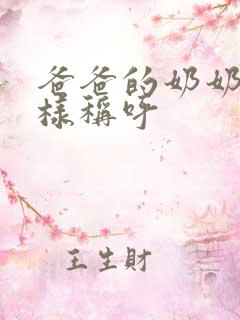 爸爸的奶奶
樣稱呼
王生財